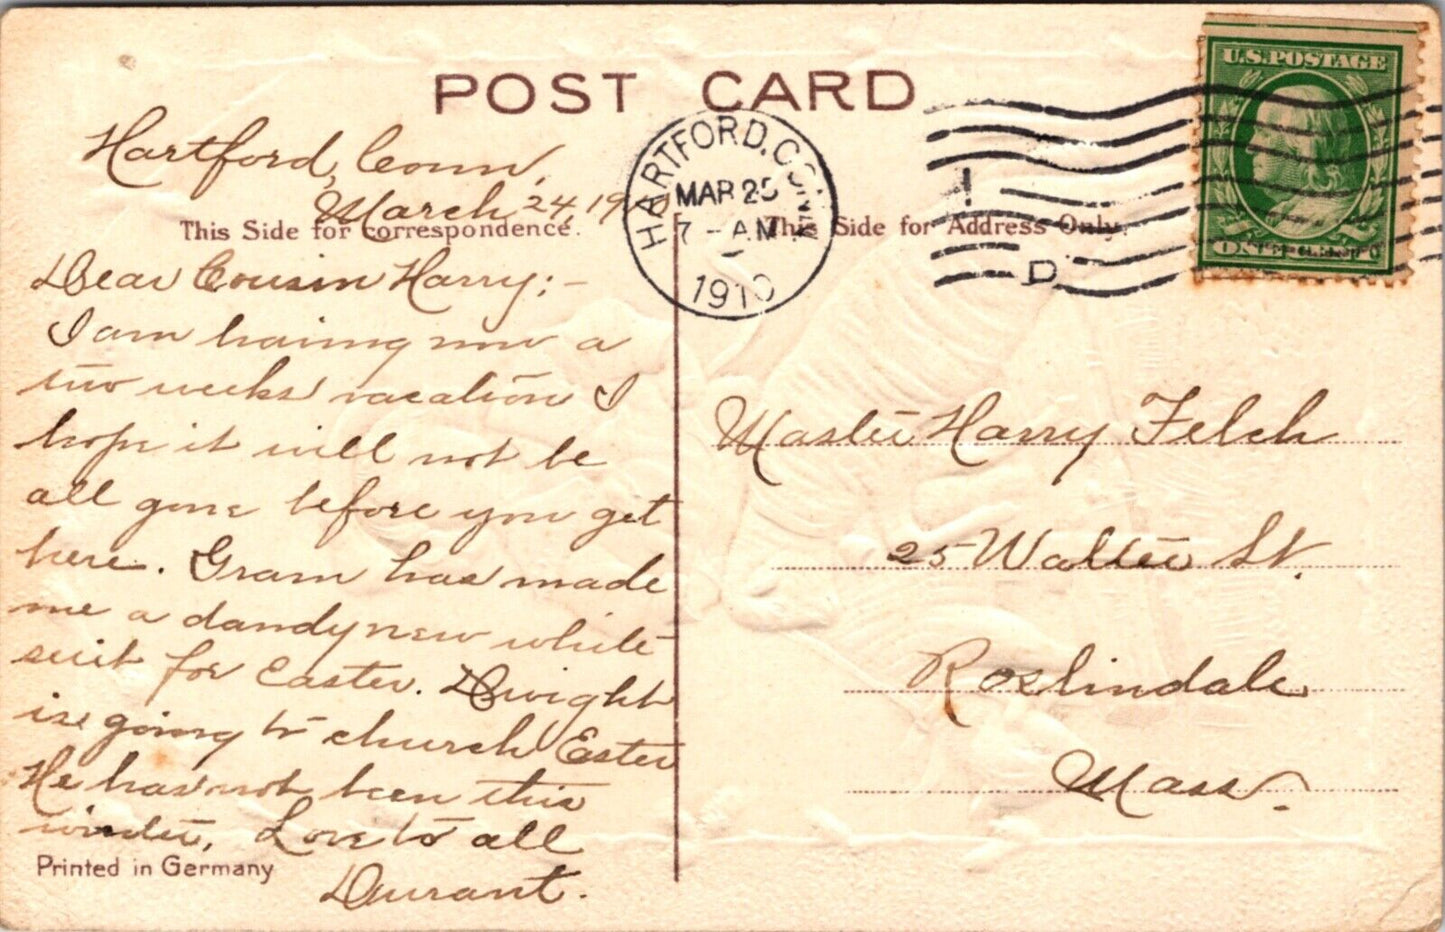 POST CARD
Hartford, Conn,
March 24, 19
This Side for correspondence.
Dear Cousin Harry; -
I am having now a
two weeks vacation I
hope it will not be
all gone before you get
here. Gram has made
me a dandy new white
suit for Easter. Dwight
is going to church Easter
He has not been this
winter, Love to all
Durant.
Printed in Germany
HARTFORD, CONN.
MAR 25
7 - AM
1910
D
U.S. POSTAGE
ONE CENT
This Side for Address Only.
Master Harry Felch
25 Walter St.
Roslindale
Mass.